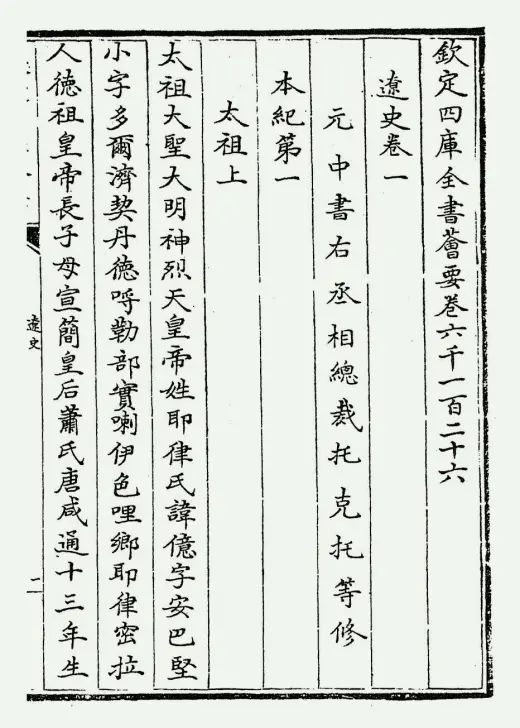 欽定四庫全書薈要卷六千一百二十六
遼史卷一
元中書右丞相總裁托克托等修
本紀第一
太祖上
太祖大聖大明神烈天皇帝姓耶律氏諱億字安巴堅
小字多爾濟契丹德呼勒部實喇伊色哩鄉耶律密拉
人德祖皇帝長子母宣簡皇后蕭氏唐咸通十三年生
遼史